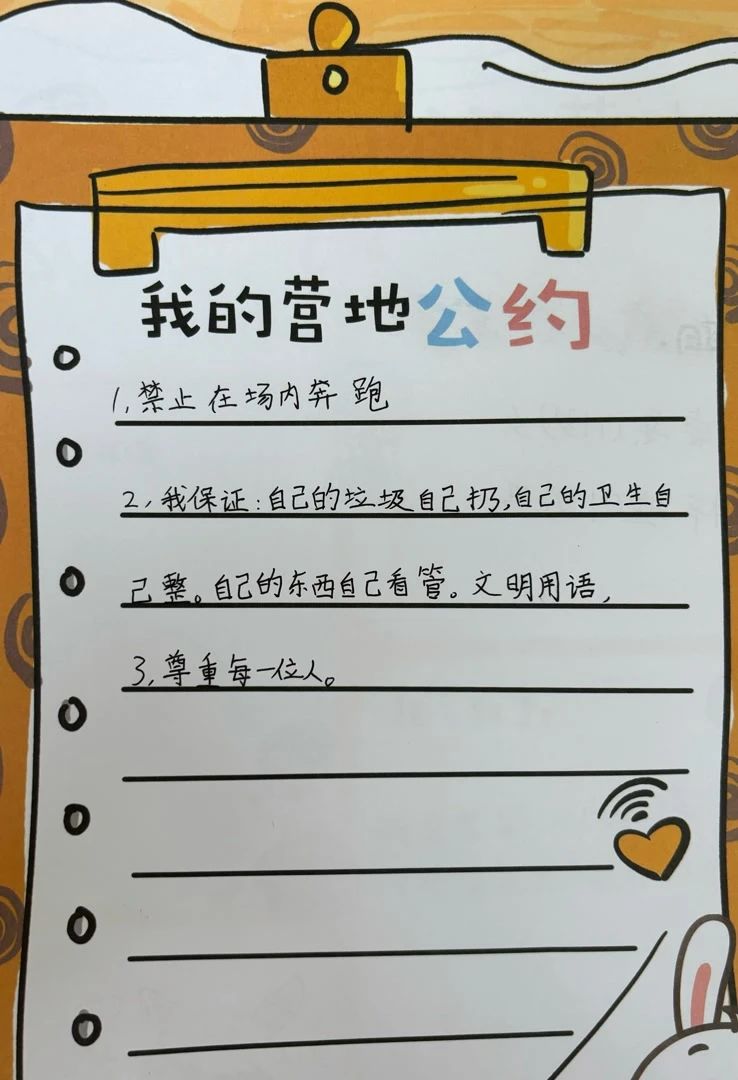 我的营地公约
1,禁止在场内奔跑
2,我保证:自己的垃圾自己扔,自己的卫生自
己整。自己的东西自己看管。文明用语,
3,尊重每一位人。